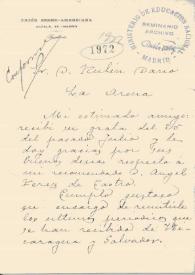 UNIÓN IBERO-AMERICANA
MINISTERIO DE EDUCACION NACIONAL
SEMINARIO
ARCHIVO
MADRID
1972
Sr. D. Rubén Darío
La Arena
Mi estimado amigo:
recibí su grata del 30
del pasado Julio y le
doy gracias por sus
buenos deseos respecto a
mi recomendado D. Angel
Pérez de Castro.
Cumplo gustoso
su encargo de remitirle
los últimos periódicos que
se han recibido de Ni-
caragua y Salvador.